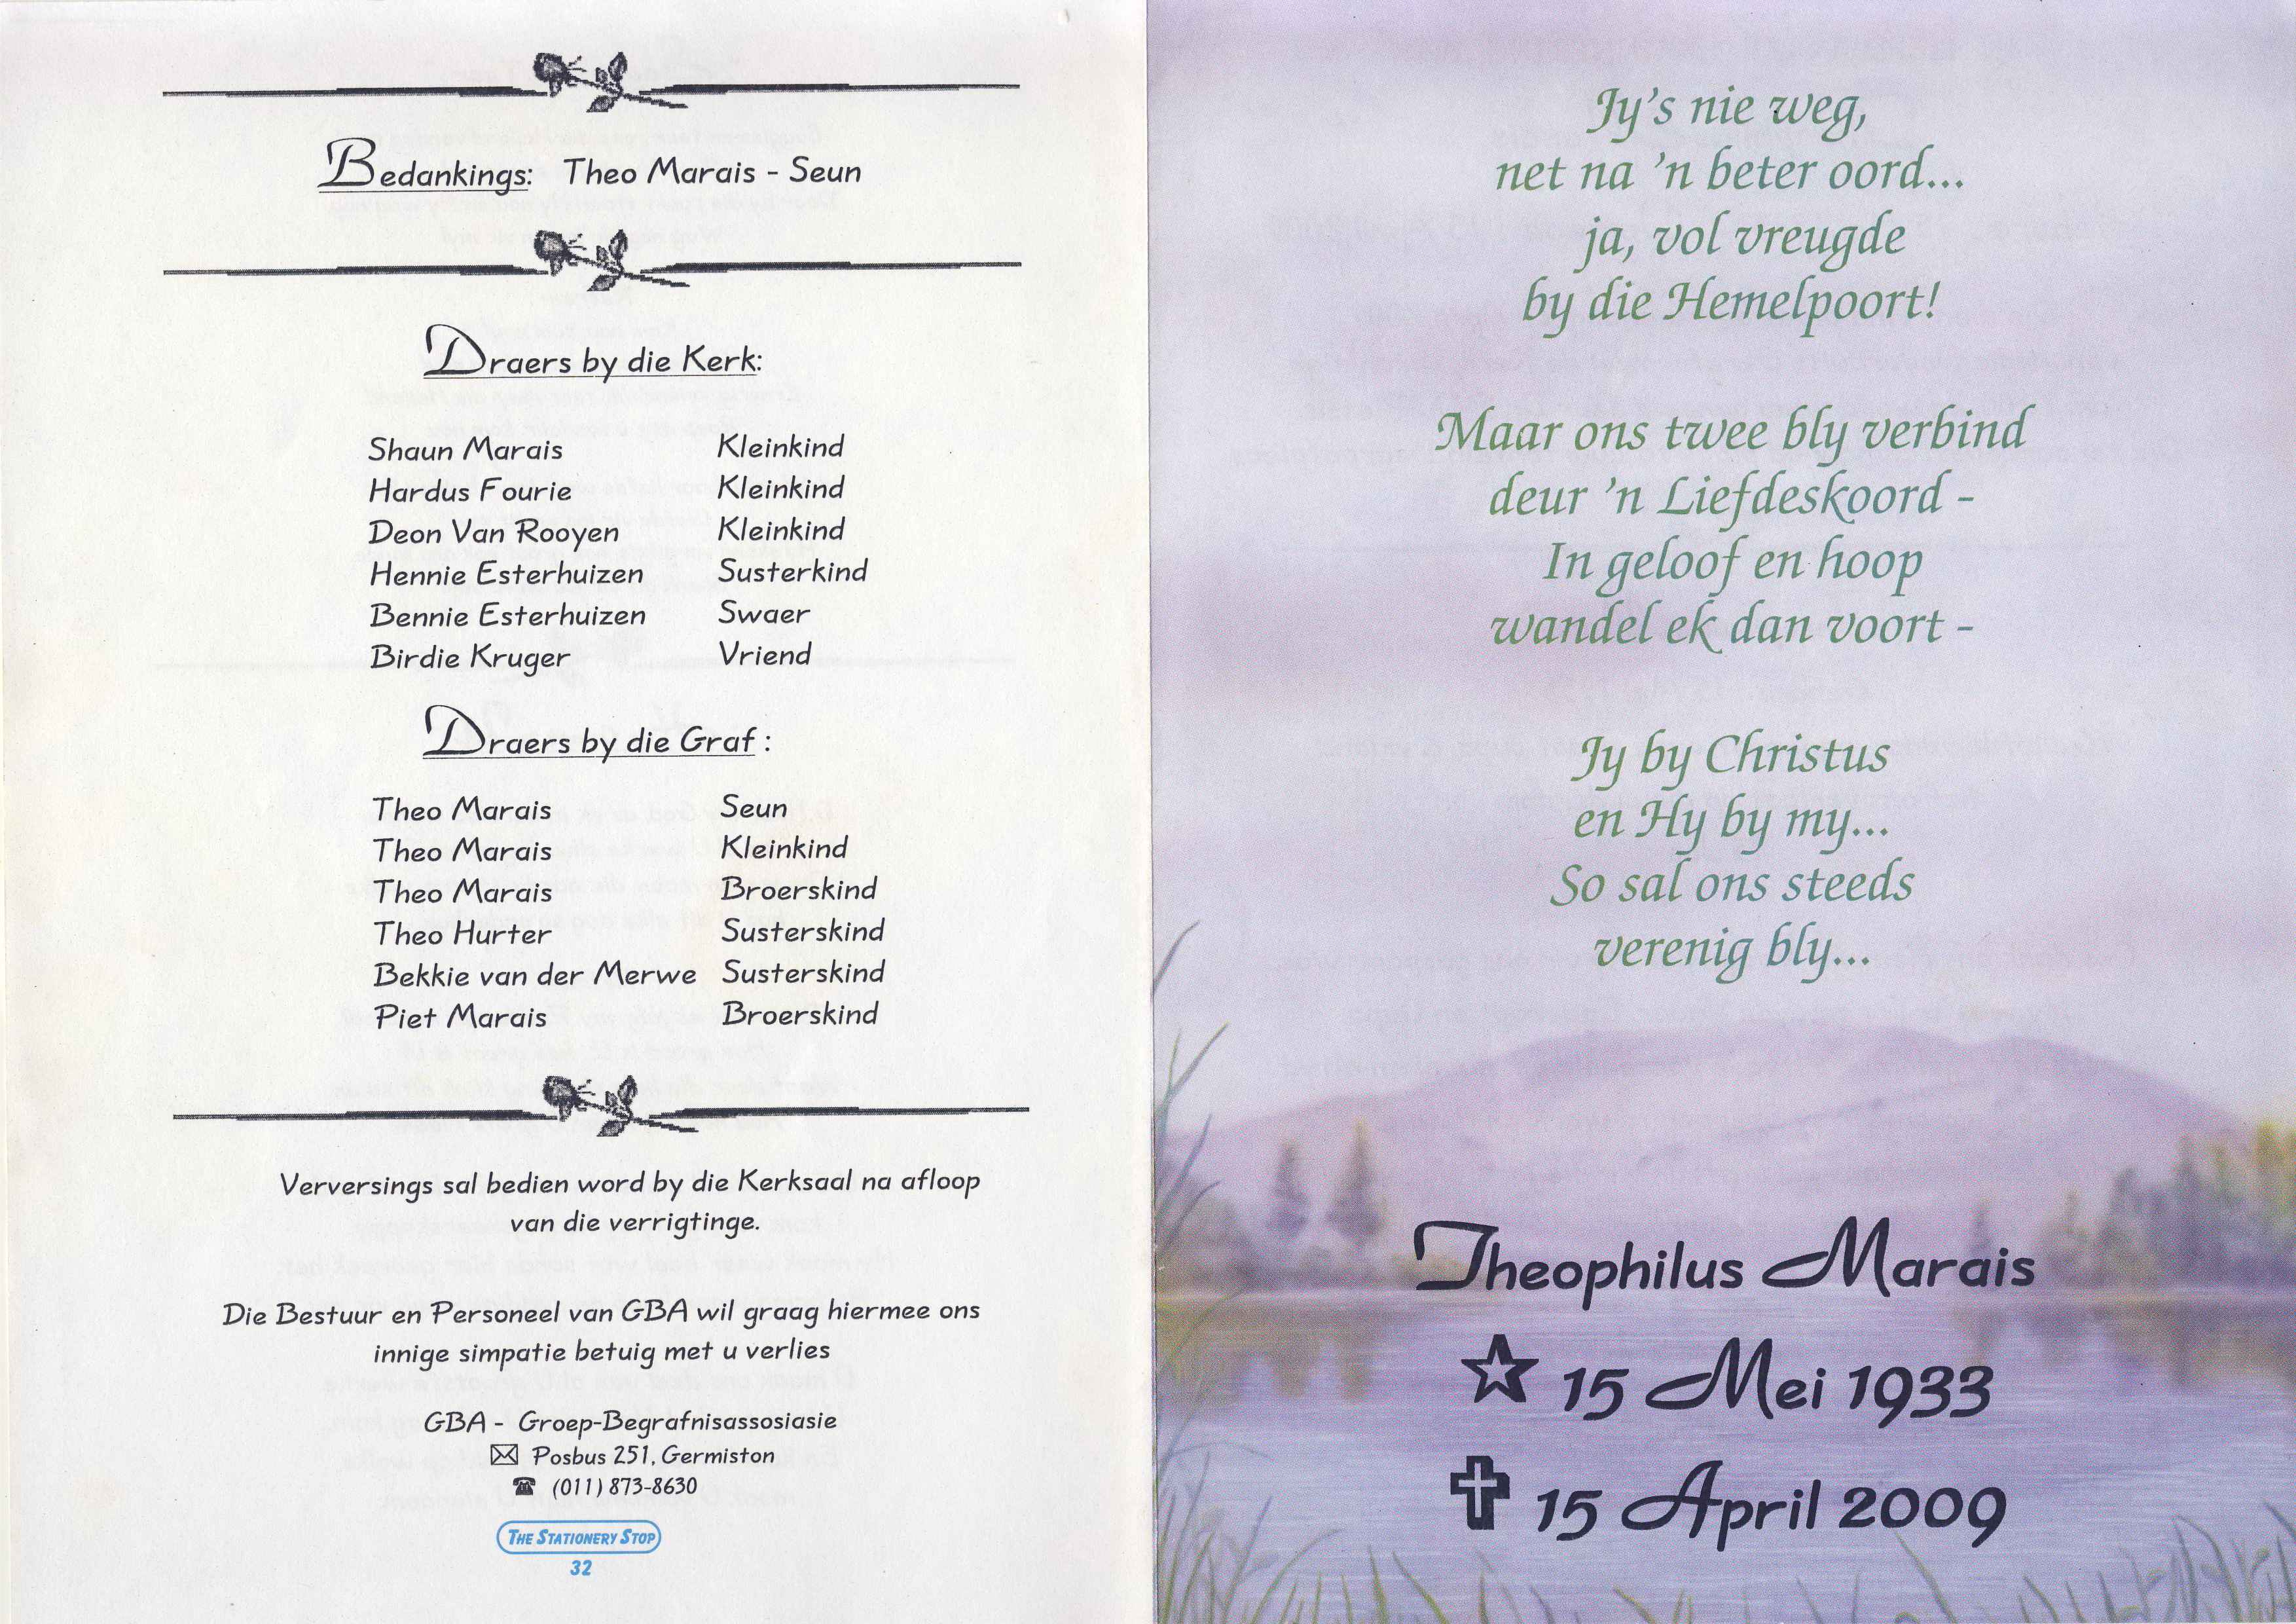 Bedankings: Theo Marais - Seun
Draers by die Kerk:
Shaun Marais Kleinkind
Hardus Fourie Kleinkind
Deon Van Rooyen Kleinkind
Hennie Esterhuizen Susterkind
Bennie Esterhuizen Swaer
Birdie Kruger Vriend
Draers by die Graf :
Theo Marais Seun
Theo Marais Kleinkind
Theo Marais Broerskind
Theo Hurter Susterskind
Bekkie van der Merwe Susterskind
Piet Marais Broerskind
Verversings sal bedien word by die Kerksaal na afloop
van die verrigtinge.
Die Bestuur en Personeel van GBA wil graag hiermee ons
innige simpatie betuig met u verlies
GBA - Groep-Begrafnisassosiasie
Posbus 251, Germiston
(011) 873-8630
THE STATIONERY STOP
32
Jy's nie weg,
net na 'n beter oord...
ja, vol vreugde
by die Hemelpoort!
Maar ons twee bly verbind
deur 'n Liefdeskoord -
In geloof en hoop
wandel ek dan voort -
Jy by Christus
en Hy by my...
So sal ons steeds
verenig bly...
Theophilus Marais
☆ 15 Mei 1933
✞ 15 April 2009